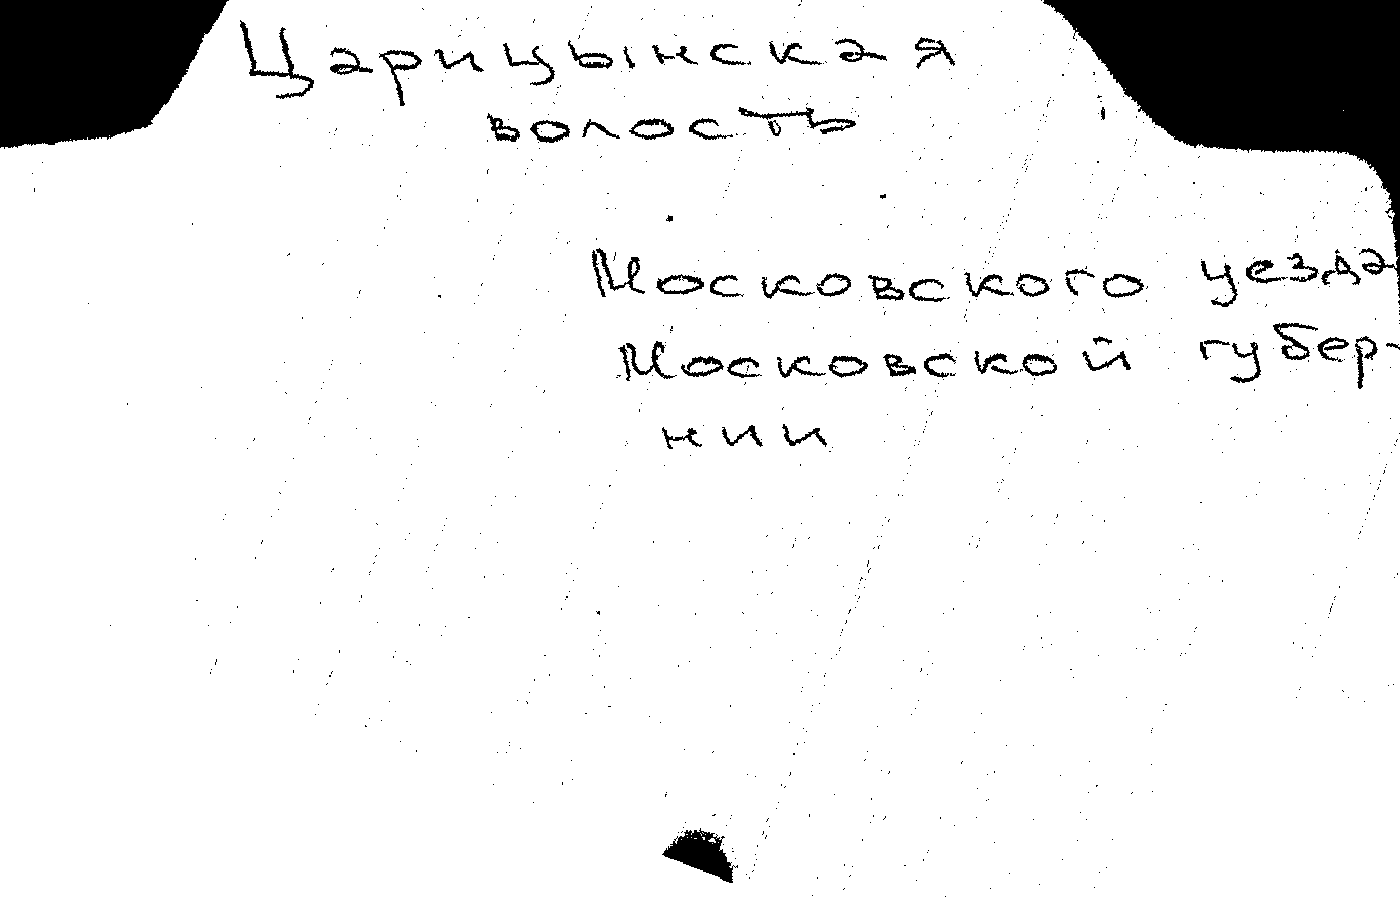 Царицынская
волость
Московского уезда
Московской губер-
нии